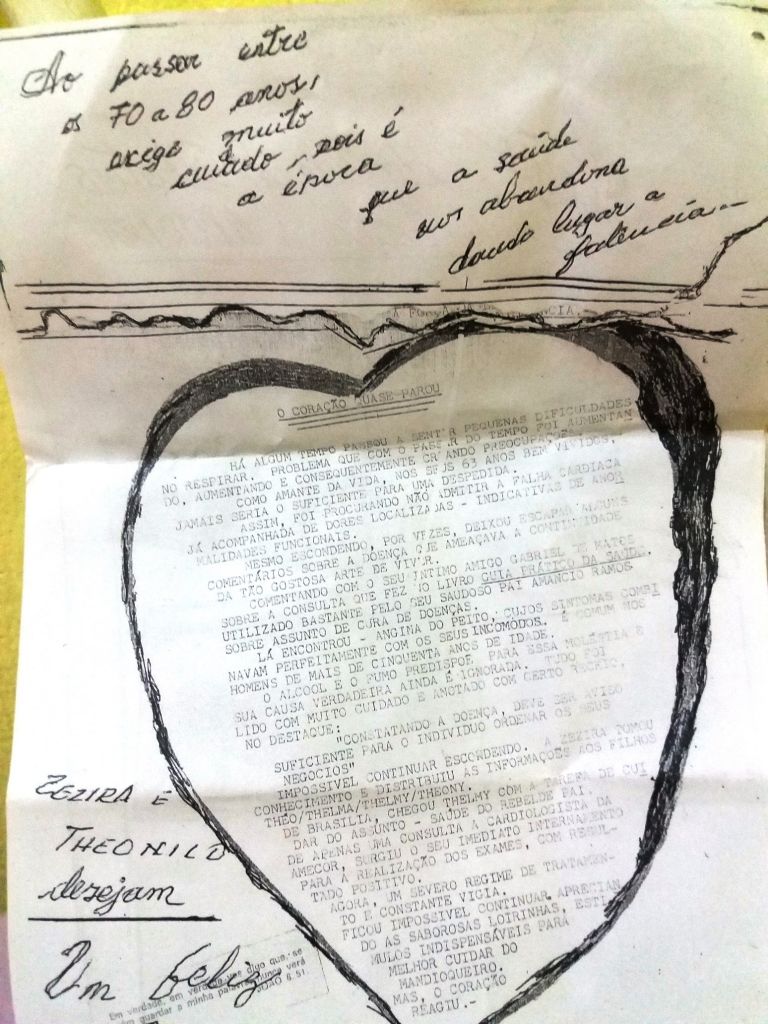 Ao passar entre
os 70 a 80 anos,
exige muito
cuidado, pois é
a época
que a saúde
nos abandona
dando lugar a
falência.-
O CORAÇÃO QUASE PAROU
HÁ ALGUM TEMPO PASSOU A SENTIR PEQUENAS DIFICULDADES
NO RESPIRAR. PROBLEMA QUE COM O PASSAR DO TEMPO FOI AUMENTAN
DO, AUMENTANDO E CONSEQUENTEMENTE CRIANDO PREOCUPAÇÕES.
COMO AMANTE DA VIDA, NOS SEUS 63 ANOS BEM VIVIDOS,
JAMAIS SERIA O SUFICIENTE PARA UMA DESPEDIDA.
ASSIM, FOI PROCURANDO NÃO ADMITIR A FALHA CARDIACA
JÁ ACOMPANHADA DE DORES LOCALIZADAS - INDICATIVAS DE ANOR
MALIDADES FUNCIONAIS.
MESMO ESCONDENDO, POR VEZES, DEIXOU ESCAPAR ALGUNS
COMENTÁRIOS SOBRE A DOENÇA QUE AMEAÇAVA A CONTINUIDADE
DA TÃO GOSTOSA ARTE DE VIVER.
COMENTANDO COM O SEU INTIMO AMIGO GABRIEL DE MATOS
SOBRE A CONSULTA QUE FEZ NO LIVRO GUIA PRÁTICO DA SAÚDE,
UTILIZADO BASTANTE PELO SEU SAUDOSO PAI AMANCIO RAMOS
SOBRE ASSUNTO DE CURA DE DOENÇAS.
LÁ ENCONTROU - ANGINA DO PEITO, CUJOS SINTOMAS COMBI
NAVAM PERFEITAMENTE COM OS SEUS INCÔMODOS. É COMUM NOS
HOMENS DE MAIS DE CINQUENTA ANOS DE IDADE.
O ALCOOL E O FUMO PREDISPOE PARA ESSA MOLÉSTIA E
SUA CAUSA VERDADEIRA AINDA É IGNORADA. TUDO FOI
LIDO COM MUITO CUIDADO E ANOTADO COM CERTO RECEIO,
NO DESTAQUE:
"CONSTATANDO A DOENÇA, DEVE SER AVISO
SUFICIENTE PARA O INDIVIDUO ORDENAR OS SEUS
NEGOCIOS"
IMPOSSIVEL CONTINUAR ESCONDENDO. A ZEZIRA TOMOU
CONHECIMENTO E DISTRIBUIU AS INFORMAÇÕES AOS FILHOS
THEO/THELMA/THELMY/THEONY.
DE BRASILIA, CHEGOU THELMY COM A TAREFA DE CUI
DAR DO ASSUNTO - SAÚDE DO REBELDE PAI.
DE APENAS UMA CONSULTA A CARDIOLOGISTA DA
AMECOR, SURGIU O SEU IMEDIATO INTERNAMENTO
PARA A REALIZAÇÃO DOS EXAMES, COM RESUL-
TADO POSITIVO.
AGORA, UM SEVERO REGIME DE TRATAMEN-
TO E CONSTANTE VIGIA.
FICOU IMPOSSIVEL CONTINUAR APRECIAN
DO AS SABOROSAS LOIRINHAS, ESTI-
MULOS INDISPENSÁVEIS PARA
MELHOR CUIDAR DO
MANDIOQUEIRO.
MAS, O CORAÇÃO
REAGIU.-
ZEZIRA E
THEONILO
dezejam
Um feliz
Em verdade, em verdade vos digo que, se
guardar a minha palavra, nunca verá
JOÃO 8.51